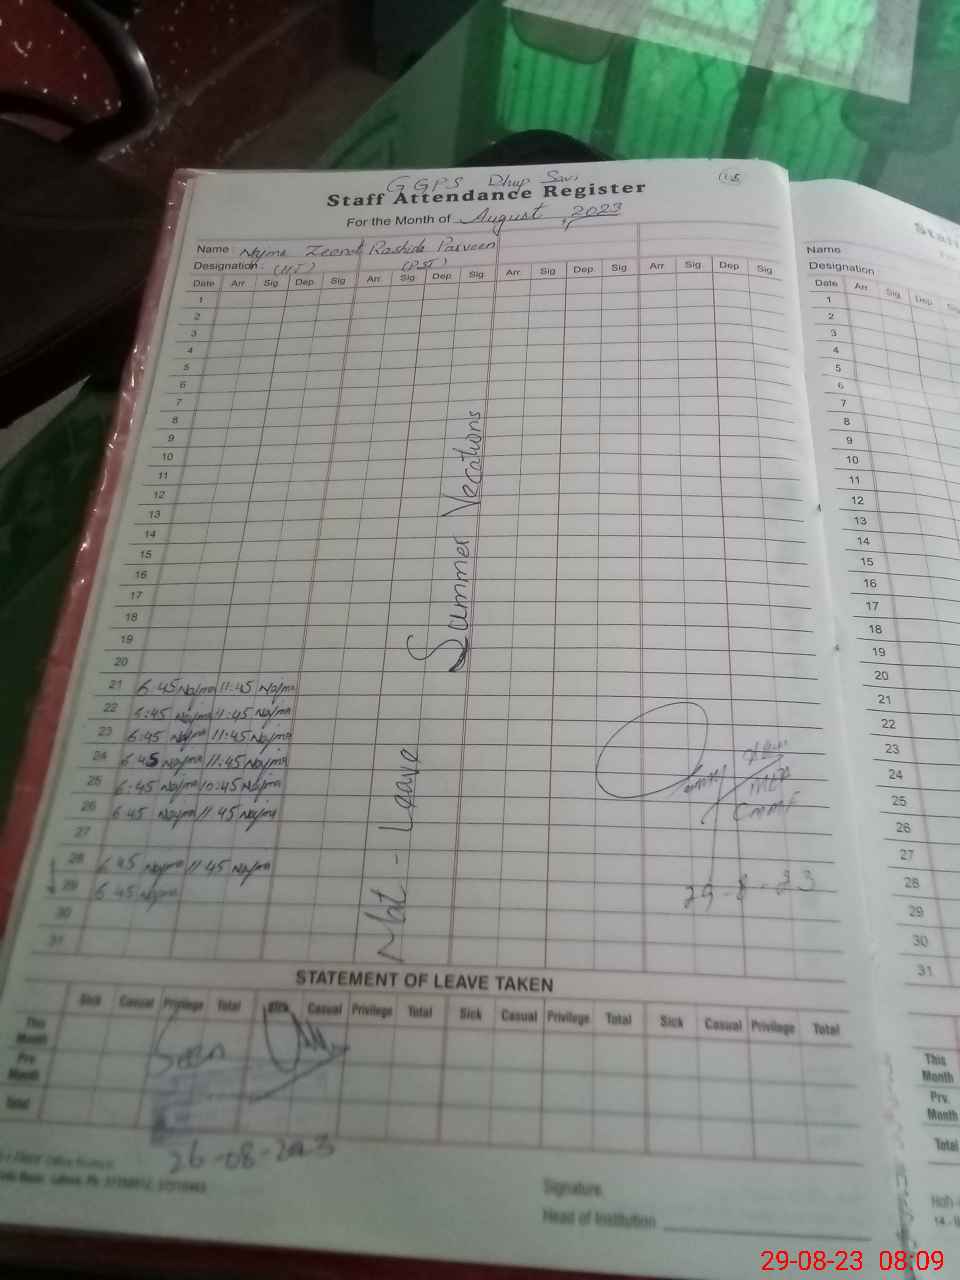 GGPS Dhup Sari
18
Staff Attendance Register
For the Month of August, 2023
Name : Najma Zeenat Rashida Parveen
Designation : (HT) (PST)
Date Arr. Sig Dep. Sig Arr. Sig Dep. Sig. Arr. Sig Dep. Sig Arr. Sig Dep Sig
1
2
3
4
5
6
7
8
9
10
11
12
13
14
15
16
17
18
19
20
Summer Vecations
21 6:45 Najma 11:45 Najma
22 6:45 Najma 11:45 Najma
23 6:45 Najma 11:45 Najma
24 6:45 Najma 11:45 Najma
25 6:45 Najma 10:45 Najma
26 6:45 Najma 11:45 Najma
27
28 6:45 Najma 11:45 Najma
29 6:45 Najma
30
31
Mat - Leave
29-8-23
STATEMENT OF LEAVE TAKEN
Sick Casual Privilege Total Sick Casual Privilege Total Sick Casual Privilege Total Sick Casual Privilege Total
This Month
Prv. Month
Total
Seen
26-08-2023
Signature
Head of Institution
Name
Designation
Date Arr. Sig Dep. Sig
1
2
3
4
5
6
7
8
9
10
11
12
13
14
15
16
17
18
19
20
21
22
23
24
25
26
27
28
29
30
31
This Month
Prv. Month
Total
29-08-23 08:09